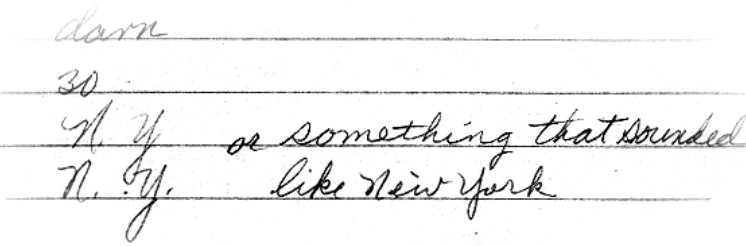 darn
30
N. Y or something that sounded
N. Y. like New York